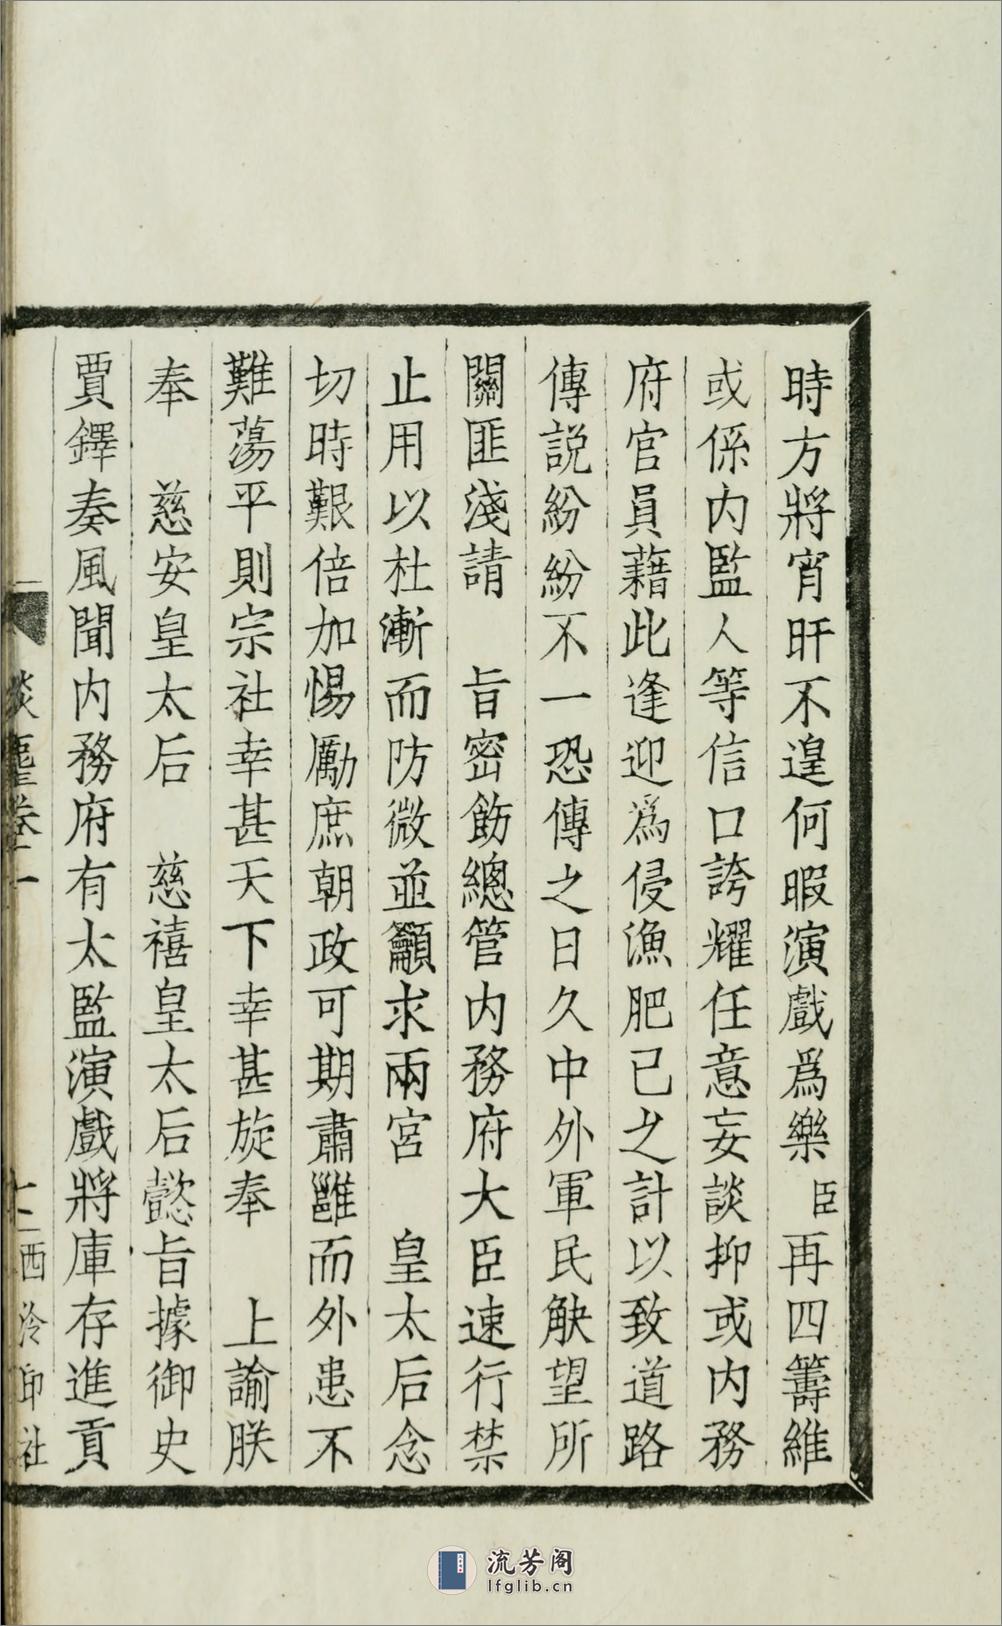 時方將宵旰不遑何暇演戲爲樂臣再四籌維
或係内監人等信口誇耀任意妄談抑或内務
府官員藉此逢迎爲侵漁肥己之計以致道路
傳説紛紛不一恐傳之日久中外軍民觖望所
關匪淺請　旨密飭總管内務府大臣速行禁
止用以杜漸而防微並籲求兩宮　皇太后念
切時艱倍加惕勵庶朝政可期肅雝而外患不
難蕩平則宗社幸甚天下幸甚旋奉　上諭朕
奉　慈安皇太后　慈禧皇太后懿旨據御史
賈鐸奏風聞内務府有太監演戲將庫存進貢
談麈卷一
西泠印社
流芳阁
lfglib.cn